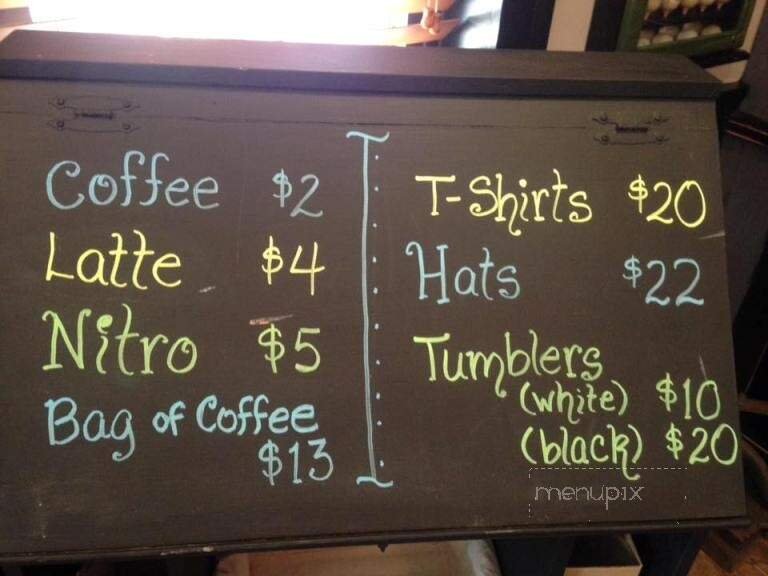 Coffee $2
Latte $4
Nitro $5
Bag of Coffee
$13
T-Shirts $20
Hats $22
Tumblers
(white) $10
(black) $20
menupix